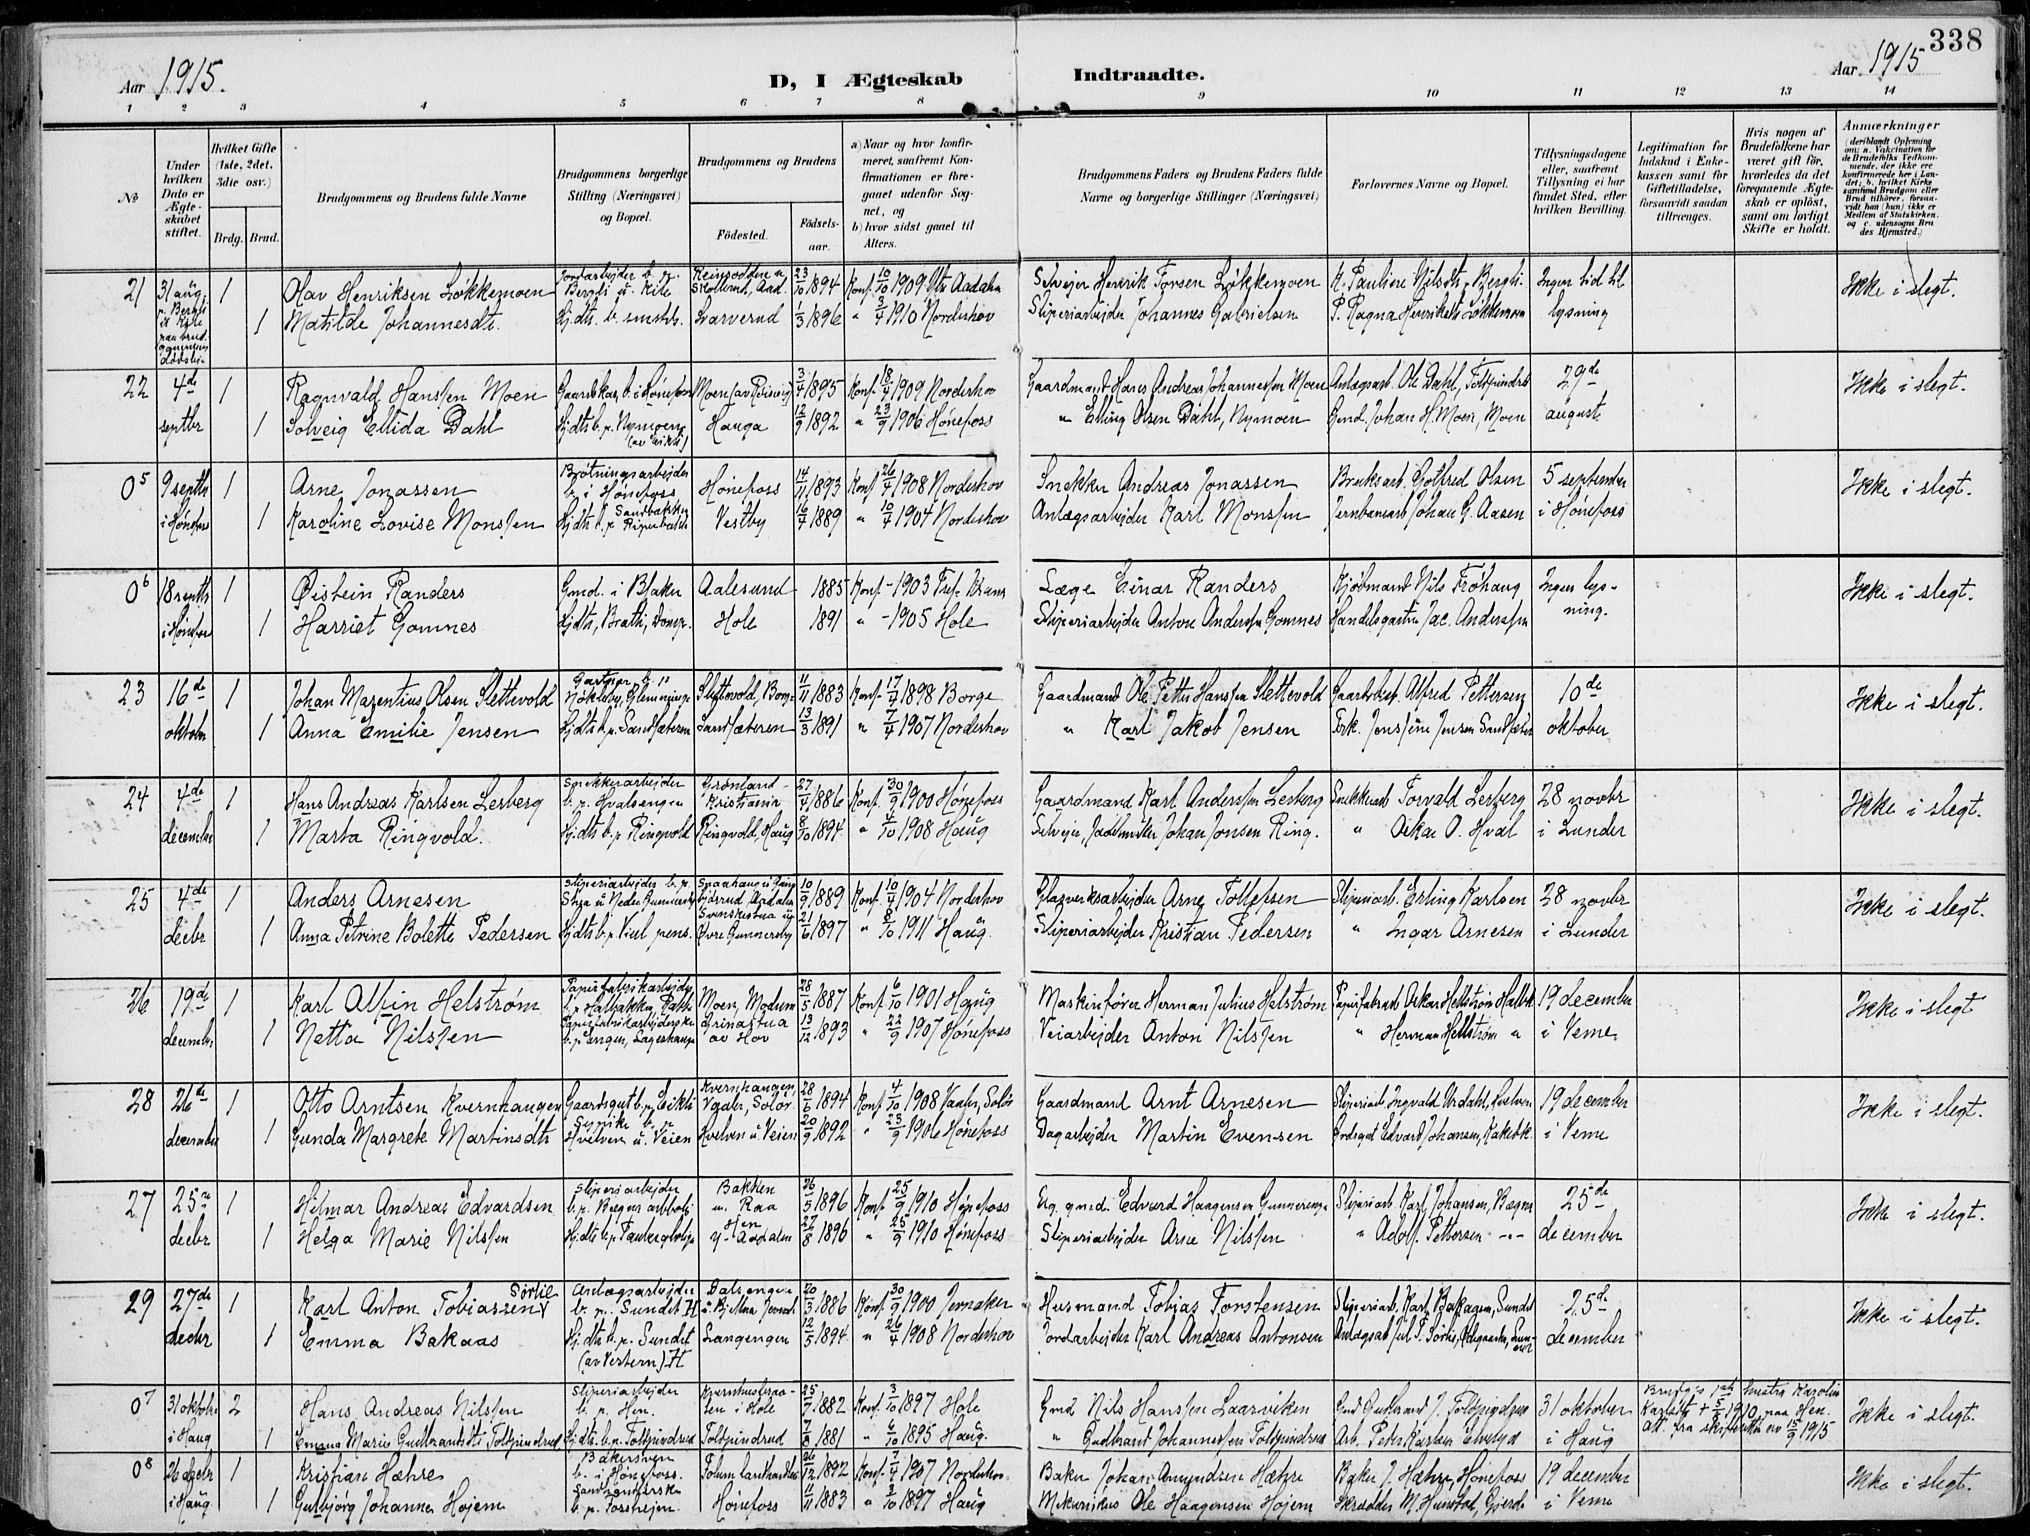 338
Aar 1915.
D, I Ægteskab Indtraadte.
Aar 1915
1 2 3 4 5 6 7 8 9 10 11 12 13 14
No
Under hvilken Dato er Ægteskabet stiftet.
Hvilket Gifte (1ste, 2det, 3die osv.)
Brdg. Brud.
Brudgommens og Brudens fulde Navne
Brudgommens borgerlige Stilling (Næringsvei) og Bopæl.
Brudgommens og Brudens
Födested.
Födselsaar.
a) Naar og hvor konfirmeret, saafremt Konfirmationen er foregaaet udenfor Sognet, og
b) hvor sidst gaaet til Alters.
Brudgommens Faders og Brudens Faders fulde Navne og borgerlige Stillinger (Næringsvei)
Forlovernes Navne og Bopæl.
Tillysningsdagene eller, saafremt Tillysning ei har fundet Sted, efter hvilken Bevilling.
Legitimation for Indskud i Enkekassen samt for Giftetilladelse, forsaavidt saadan tiltrænges.
Hvis nogen af Brudefolkene har været gift för, hvorledes da det foregaaende Ægteskab er oplöst, samt om lovligt Skifte er holdt.
Anmærkninger
(deriblandt Oplysning om: a. Vakcination for de Brudefolks Vedkommende, der ikke ere konfirmerede her i Landet; b. hvilket Kirkesamfund Brudgom eller Brud tilhörer, forsaavidt han (hun) ikke er Medlem af Statskirken, og c. udensogns Brudes Hjemsted.)
21 31 aug. 1 Olav Henriksen Løkkemoen 23/10 1894 Konf. 10/10 1909 Ytr. Aadalen Selveier Henrik Torsen Løkkemoen K. Pauline Nilsdt., Bergli. Ingen tid til Ikke i slegt.
1 Matilde Johannesdt. Hjdts. b. smstds. Svarverud 3/3 1896 " 3/4 1910 Norderhov Sliperiarbeider Johannes Gabrielsen P. Ragna Henriksdt. Løkkemoen lysning
22 4de 1 Ragnvald Hanssen Moen Gaardskar b. i Hønefoss 3/4 1895 Konf. 18/4 1909 Norderhov Gaardmand Hans Andreas Johannessen Moen Anlægsarb. Ole Dahl, Tolpinrud 29de Ikke i slegt.
septbr 1 Solveig Ellida Dahl Hjdts b. p. Nymoen Hauga 12/9 1892 " 23/9 1906 Hønefoss " Elling Olsen Dahl, Nymoen Gmd. Johan H. Moen, Moen august
05 9 septbr 1 Arne Jonassen Brøtningsarbeider b. i Hønefoss Hønefoss 14/11 1893 Konf. 26/4 1908 Norderhov Snekker Andreas Jonassen Bruksarb. Gotfred Olsen 5 september Ikke i slegt.
i Hønefoss 1 Karoline Lovise Monssen Vestby 16/7 1889 " 10/4 1904 Norderhov Anlægsarbeider Karl Monssen Jernbanearb. Johan G. Aasen i Hønefoss
06 18 septbr 1 Øistein Randers Gmd. i Blaker Aalesund 1885 Konf. - 1903 Læge Einar Randers Kjøbmand Nils Frøhaug Ingen lys- Ikke i slegt.
i Hønefoss 1 Harriet Gomnes Hole 1891 " - 1905 Hole Sliperiarbeider Anton Anderssen Gomnes Handelsgartn. Jac. Anderssen ning.
23 16de 1 Johan Maxentius Olsen Slettevold Slettevold, Borge 11/11 1883 Konf. 17/4 1898 Borge Gaardmand Ole Petter Hanssen Slettevold Gaardbest. Alfred Pettersen 10de Ikke i slegt.
oktober 1 Anna Emilie Jensen Hjdts b. p. Sandsæteren Sandsæteren 13/3 1891 " 7/4 1907 Norderhov " Karl Jakob Jensen Frk. Jenssine Jensen Sandsæter oktober
24 4de 1 Hans Andreas Karlsen Lerberg Snekkerarbeider b. p. Hvalsengen Grønland Kristiania 27/4 1886 Konf. 30/9 1900 Hønefoss Gaardmand Karl Anderssen Lerberg Snekkerarb. Torvald Lerberg 28 novbr Ikke i slegt.
december 1 Marta Ringvold. Hjdts b. p. Ringvold Ringvold, Haug 8/10 1894 " 4/10 1908 Haug Selveier, Johan Jonsen Ring. " Oskar O. Hval i Lunder
25 4de 1 Anders Arnesen Sliperiarbeider b. p. 10/9 1889 Konf. 10/4 1904 Norderhov Glasverksarbeider Arne Tollefsen Sliperiarb. Erling Karlsen 28 novbr Ikke i slegt.
decbr 1 Anna Petrine Bolette Pedersen Øvre Gunnersby 21/6 1897 " 8/10 1911 Haug. Sliperiarbeider Kristian Pedersen " Ingar Arnesen i Lunder
26 19de 1 Karl Alfin Helstrøm Papirfabrikarbeider Moen, Modum 28/5 1887 Konf. 6/10 1901 Haug Maskinfører Herman Julius Helstrøm Papirfabrikarb. Oskar Hellstrøm 19 december Ikke i slegt
december 1 Netta Nilssen av Hov 13/12 1893 " 22/9 1907 Hønefoss Veiarbeider Anton Nilssen " Herman Hellstrøm " i Veme.
28 26de 1 Otto Arntsen Kvernhaugen Gaardsgut b. p. Eikli Kvernhaugen, Vaaler, Solør 28/6 1894 Konf. 4/10 1908 Vaaler, Solør Gaardmand Arnt Arnesen Sliperiarb. Ingvald Urdahl, Hvelven 19 december Ikke i slegt.
december 1 Gunda Margrete Martinsdtr Hvelven u. Veien Hvelven u. Veien 20/9 1892 " 23/9 1906 Hønefoss Dagarbeider Martin Evensen Edvard Johansen, i Veme
27 25de 1 Hilmar Andreas Edvardsen Sliperiarbeider Bakken u. Raa 26/5 1896 Konf. 25/9 1910 Hønefoss Edvard Haagensen Gunnerenga Sliperiarb. Karl Johansen, Begna 25de Ikke i slegt.
decbr 1 Helga Marie Nilssen Hen Y. Aadalen 27/8 1896 " 25/9 1910 Hønefoss Sliperiarbeider Arne Nilssen " Adolf Pettersen -"- december
29 27de 1 Karl Anton Tobiassen Sørlie Anlægsarbeider b. p. Sundet H. 20/3 1886 Konf. 30/9 1900 Jevnaker Husmand Tobias Torstensen Sliperiarb. Karl Bakaasen, Sundet 25de Ikke i slegt.
decbr 1 Emma Bakaas Hjdts. b. p. Sundet (av Vestern) H Svangengen 12/5 1894 " 26/4 1908 Norderhov Jordarbeider Karl Andreas Antonsen december
07 31 oktober 2 Hans Andreas Nilssen Sliperiarbeider b. p. Hen. i Hole 25/7 1882 Konf. 3/10 1897 Hole Gmd Nils Hanssen Laarviken Gmd Gudbrand J. Tolpinrud 31 oktober Brudg.s 1ste hustru Karoline Karlsdt + 5/5 1910 paa Hen. Att. fra skifteretten av 15/9 1915 Ikke i slegt.
i Haug 1 Emma Marie Gudbrandsdt. Tolpinrud Hjdts. b. p. Tolpinrud Tolpinrud 7/8 1881 " 6/10 1895 Haug. " Gudbrand Johannessen Tolpinrud Arb. Peter Karlsen i Haug
08 26 decbr 1 Kristian Hæhre Bakersven b. i Hønefoss. 26/12 1892 Konf. 7/4 1907 Norderhov Baker Johan Amundsen Hæhre Baker J. Hæhre, Hønefoss 19 december Ikke i slegt.
i Haug 1 Gulbjørg Johanne Hojem Hønefoss 11/11 1883 " 3/10 1897 Haug Mekanikus Ole Haagensen Hojem Skrædder M. Hunstad, Gjerde i Veme